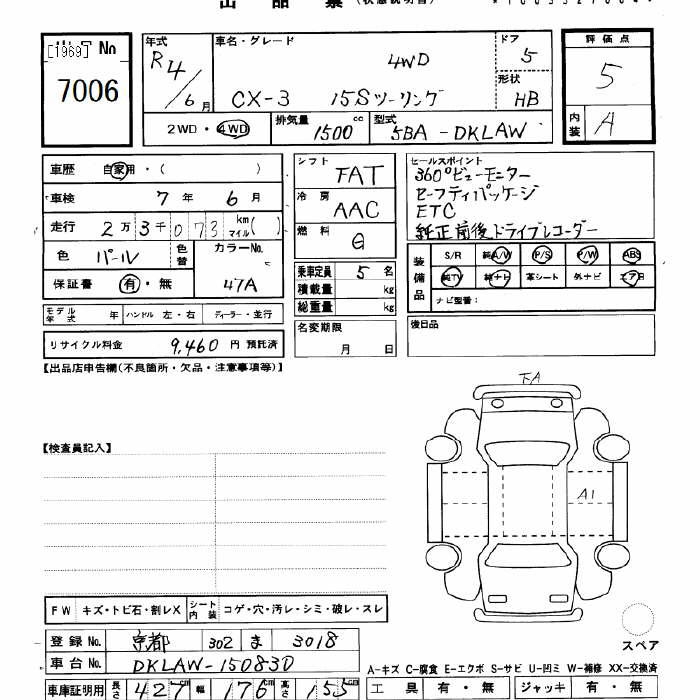 出 品 票 (状態説明書)
[1969] No
7006
年式
R4/6月
車名・グレード
4WD
CX-3 15Sツーリング
ドア
5
形状
HB
評価点
5
内装 A
2WD・4WD
排気量 1500 cc
型式 5BA-DKLAW
車歴 自家用・( )
車検 7年 6月
走行 2万3千073 km マイル( )
色 パール
色替
カラーNo. 47A
保証書 有・無
シフト FAT
冷房 AAC
燃料 G
乗車定員 5名
積載量 kg
総重量 kg
セールスポイント
360°ビューモニター
セーフティパッケージ
ETC
純正前後ドライブレコーダー
装備品
S/R 純A/W P/S P/W ABS
純TV 純ナビ 革シート 外ナビ エアB
ナビ型番:
モデル年式 年 ハンドル 左・右 ディーラー・並行
リサイクル料金 9,460 円 預託済
名変期限
月 日
後日品
【出品店申告欄(不良箇所・欠品・注意事項等)】
【検査員記入】
FA
A1
スペア
FW キズ・トビ石・割レX シート内装 コゲ・穴・汚レ・シミ・破レ・スレ
登録No. 京都 302 ま 3018
車台No. DKLAW-150830
車庫証明用 長さ 427cm 幅 176cm 高さ 155cm
A-キズ C-腐食 E-エクボ S-サビ U-凹ミ W-補修 XX-交換済
工具 有・無 ジャッキ 有・無